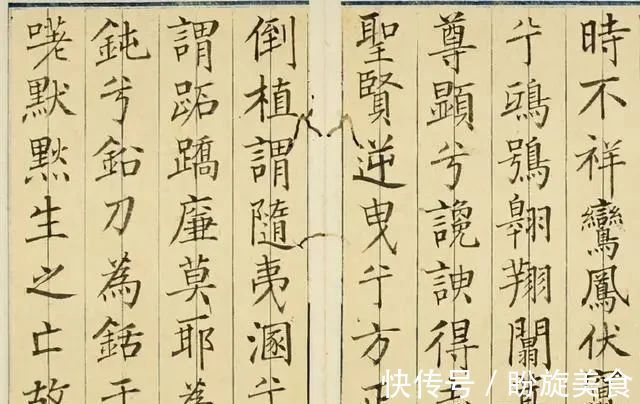 時不祥鸞鳳伏
兮鴟鴞翱翔闒
尊顯兮讒諛得志
聖賢逆曳兮方正
倒植謂隨夷溷兮
謂跖蹻廉莫耶為
鈍兮鉛刀為銛于
嚜默黙生之亡故
快传号／盼旋美食